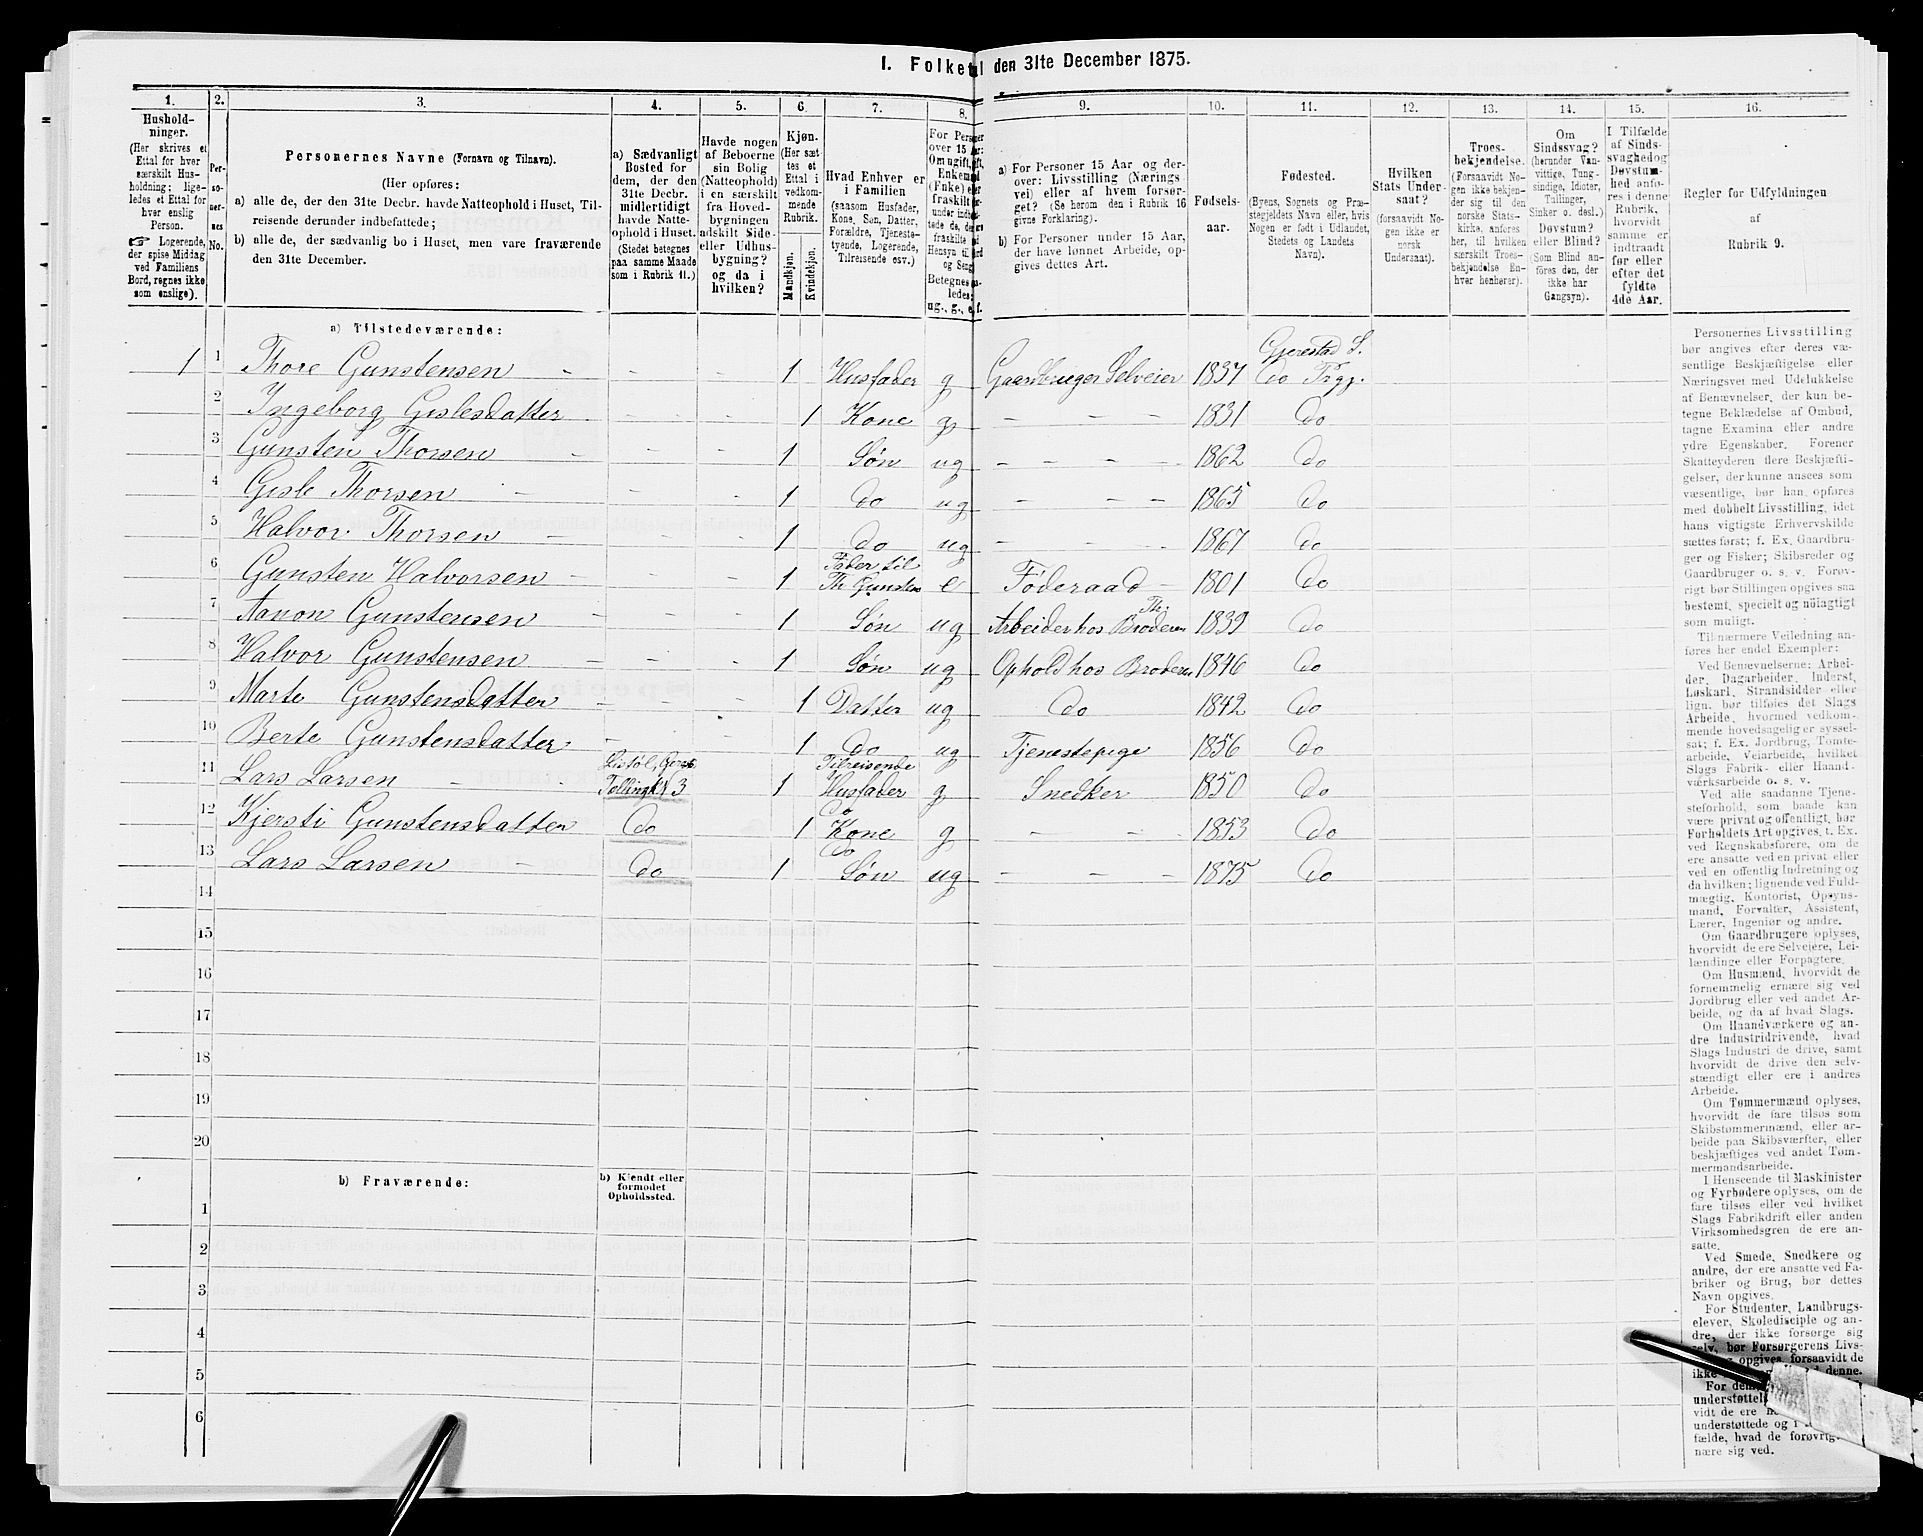 I. Folketal den 31te December 1875.
1. 2. 3. 4. 5. 6. 7. 8. 9. 10. 11. 12. 13. 14. 15. 16.
Hushold-
ninger.
(Her skrives et
Ettal for hver
særskilt Hus-
holdning; lige-
ledes et Ettal for
hver enslig
Person.
☞ Logerende,
der spise Middag
ved Familiens
Bord, regnes ikke
som enslige).
Per-
so-
ner-
nes
No.
Personernes Navne (Fornavn og Tilnavn).
(Her opføres:
a) alle de, der den 31te Decbr. havde Natteophold i Huset, Til-
reisende derunder indbefattede;
b) alle de, der sædvanlig bo i Huset, men vare fraværende
den 31te December.
a) Sædvanligt
Bosted for
dem, der den
31te Decbr.
midlertidigt
havde Natte-
ophold i Huset.
(Stedet betegnes
paa samme Maade
som i Rubrik 11.)
Havde nogen
af Beboerne
sin Bolig
(Natteophold)
i en særskilt
fra Hoved-
bygningen
adskilt Side-
eller Udhus-
bygning?
og da i
hvilken?
Kjøn.
(Her sæt-
tes et
Ettal i
vedkom-
mende
Rubrik.
Mandkjøn.
Kvindekjøn.
Hvad Enhver er
i Familien
(saasom Husfader,
Kone, Søn, Datter,
Forældre, Tjeneste-
tyende, Logerende,
Tilreisende osv.)
For Personer
over 15 Aar:
Om ugift, gift,
Enkemand
(Enke) eller
fraskilt
ug., g., e., f.
a) For Personer 15 Aar og der-
over: Livsstilling (Nærings-
vei) eller af hvem forsør-
get? (Se herom den i Rubrik 16
givne Forklaring).
b) For Personer under 15 Aar,
der have lønnet Arbeide, op-
gives dettes Art.
Fødsels-
aar.
Fødested.
(Byens, Sognets og Præ-
stegjeldets Navn eller, hvis
Nogen er født i Udlandet,
Stedets og Landets
Navn).
Hvilken
Stats Under-
saat?
(forsaavidt No-
gen ikke er
norsk
Undersaat).
Troes-
bekjendelse.
(Forsaavidt No-
gen ikke bekjen-
der sig til den
norske Stats-
kirke, anføres
her, til hvilken
særskilt Troes-
bekjendelse En-
hver henhører).
Om
Sindssvag?
(herunder Van-
vittige, Tung-
sindige, Idioter,
Tullinger,
Sinker o. desl.)
Døvstum?
eller Blind?
(Som Blind an-
føres den, der
ikke har
Gangsyn).
I Tilfælde
af Sinds-
svaghed og
Døvstum-
hed anfø-
res i denne
Rubrik,
hvorvidt
samme er
indtraadt
før eller
efter det
fyldte
4de Aar.
Regler for Udfyldningen
af
Rubrik 9.
a) Tilstedeværende:
1 1 Thore Gunstensen - - - 1 Husfader g Gaardbruger Selveier 1837 Gjerestad S. do Prgj.
2 Ingeborg Gislesdatter - - 1 Kone g - - - 1831 Do
3 Gunsten Thorsen - - - 1 Søn ug - - - 1862 Do
4 Gisle Thorsen - - - 1 do ug - - - 1865 Do
5 Halvor Thorsen - - - 1 do ug - - 1867 Do
6 Gunsten Halvorsen - - - 1 Fader til Th Gunsten e Føderaad - 1801 Do
7 Aanon Gunstensen - - - 1 Søn ug Arbeider hos Broderen Th. 1839 Do
8 Halvor Gunstensen - - - 1 Søn ug Ophold hos Broderen 1846 Do
9 Marte Gunstensdatter - - - 1 Datter ug Do 1842 Do
10 Berte Gunstensdatter - - - 1 Do ug Tjenestepige 1856 Do
11 Lars Larsen - - Tellingk 3 1 Tilreisende Husfader g Snedker 1850 Do
12 Kjersti Gunstensdatter Do 1 Do Kone g - - - 1853 Do
13 Lars Larsen - Do 1 Do Søn ug - - - 1875 Do
14
15
16
17
18
19
20
b) Fraværende:
b) Kjendt eller
formodet
Opholdssted.
1
2
3
4
5
6
Personernes Livsstilling
bør angives efter deres væ-
sentlige Beskjæftigelse eller
Næringsvei med Udelukkelse
af Benævnelser, der kun be-
tegne Beklædelse af Ombud,
tagne Examina eller andre
ydre Egenskaber. Forener
Skatteyderen flere Beskjæfti-
gelser, der kunne ansees som
væsentlige, bør han opføres
med dobbelt Livsstilling, idet
hans vigtigste Erhvervskilde
sættes først; f. Ex. Gaardbru-
ger og Fisker; Skibsreder og
Gaardbruger o. s. v. Forøv-
rigt bør Stillingen opgives saa
bestemt, specielt og nøiagtigt
som muligt.
Til nærmere Veiledning an-
føres her endel Exempler:
Ved Benævnelserne: Arbei-
der, Dagarbeider, Inderst,
Løskarl, Strandsidder eller
lign. bør tilføies det Slags
Arbeide, hvormed vedkom-
mende hovedsagelig er syssel-
sat; f. Ex. Jordbrug, Tomte-
arbeide, Veiarbeide, hvilket
Slags Fabrik- eller Haand-
værksarbeide o. s. v.
Ved alle saadanne Tjene-
steforhold, som baade kan
være privat og offentligt, bør
Forholdets Art opgives, t. Ex.
ved Regnskabsførere, om de
ere ansatte ved en privat eller
ved en offentlig Indretning og
da hvilken; lignende ved Fuld-
mægtig, Kontorist, Opsyns-
mand, Forvalter, Assistent,
Lærer, Ingeniør og andre.
Om Gaardbrugere oplyses,
hvorvidt de ere Selveiere, Lei-
lændinge eller Forpagtere.
Om Husmænd, hvorvidt de
fornemmelig ernære sig ved
Jordbrug eller ved andet Ar-
beide, og da af hvad Slags.
Om Haandværkere og an-
dre Industridrivende, hvad
Slags Industri de drive, samt
hvorvidt de drive den selv-
stændigt eller ere i andres
Arbeide.
Om Tømmermænd oplyses,
hvorvidt de fare tilsøs som
Skibstømmermænd, eller ar-
beide paa Skibsværfter, eller
beskjæftiges ved andet Tøm-
mermandsarbeide.
I Henseende til Maskinister
og Fyrbødere oplyses, om de
fare tilsøs eller ved hvilket
Slags Fabrikdrift eller anden
Virksomhedsgren de ere an-
satte.
Ved Smede, Snedkere og
andre, der ere ansatte ved Fa-
briker og Brug, bør dettes
Navn opgives.
For Studenter, Landbrugs-
elever, Skoledisciple og an-
dre, der ikke forsørge sig
selv, bør Forsørgerens Livs-
opgives, forsaavidt de
ikke denne.
For dem,
understøttel
vidt de ere
understøttede og i
fælde, hvad de forøvrigt
nære sig ved.